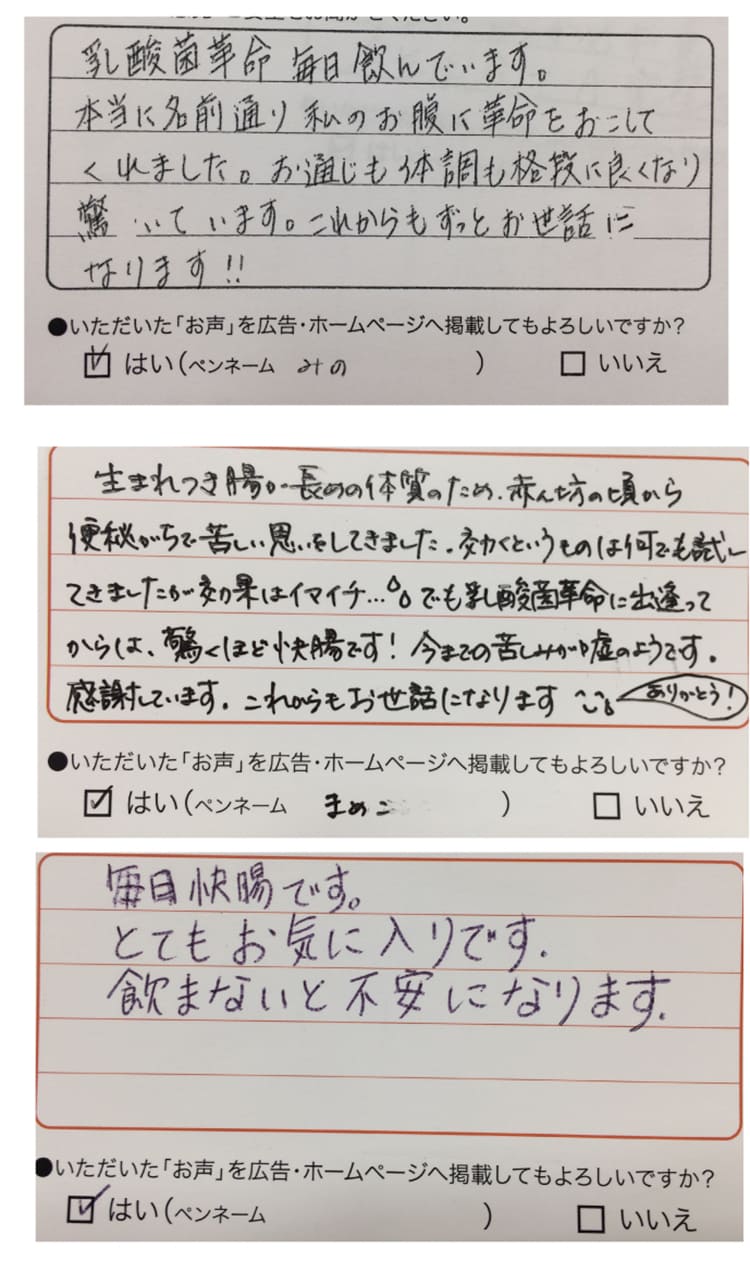 乳酸菌革命 毎日飲んでいます。
本当に名前通り 私のお腹に革命をおこして
くれました。お通じも体調も格段に良くなり
驚いています。これからもずっとお世話に
なります!!
●いただいた「お声」を広告・ホームページへ掲載してもよろしいですか?
はい(ペンネーム みの ) いいえ
生まれつき腸が長めの体質のため、赤ん坊の頃から
便秘がちで苦しい思いをしてきました。効くというものは何でも試し
てきましたが効果はイマイチ…でも乳酸菌革命に出逢って
からは、驚くほど快腸です!今までの苦しみが嘘のようです。
感謝しています。これからもお世話になります ありがとう!
●いただいた「お声」を広告・ホームページへ掲載してもよろしいですか?
はい(ペンネーム まめこ ) いいえ
毎日快腸です。
とてもお気に入りです.
飲まないと不安になります.
●いただいた「お声」を広告・ホームページへ掲載してもよろしいですか?
はい(ペンネーム ) いいえ